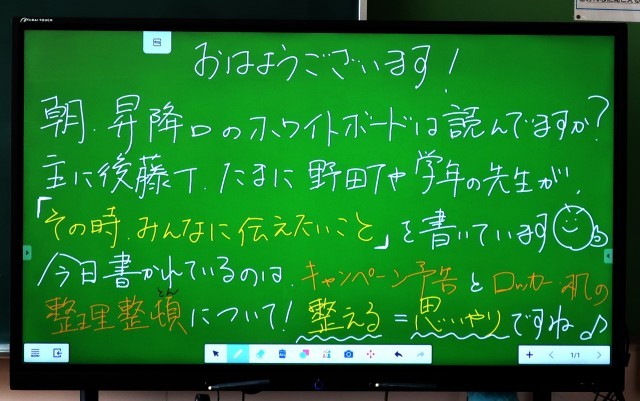 おはようございます！
朝、昇降口のホワイトボードは読んでますか？
主に後藤T、たまに野田Tや学年の先生が、
「その時、みんなに伝えたいこと」を書いています
今日書かれているのは、キャンペーン予告とロッカー、机の
整理整頓について！ 整える＝思いやりですね♪
とん
1/1